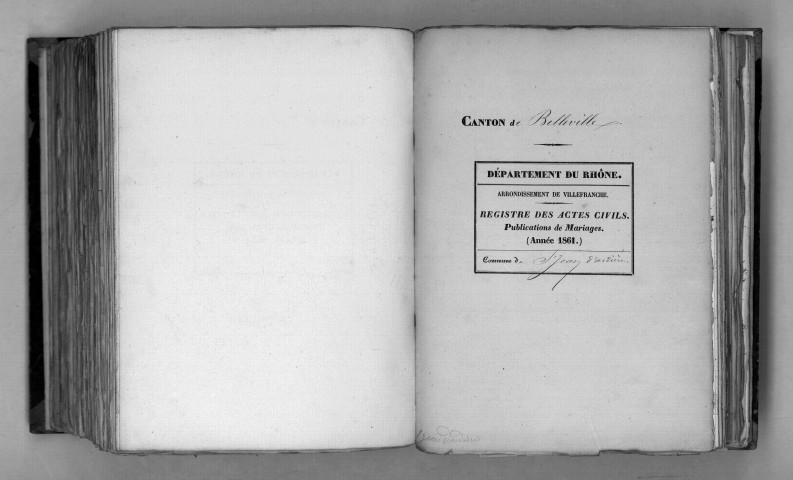 CANTON de Belleville
DÉPARTEMENT DU RHÔNE.
ARRONDISSEMENT DE VILLEFRANCHE.
REGISTRE DES ACTES CIVILS.
Publications de Mariages.
(Année 1861.)
Commune de St Jean d'ardières